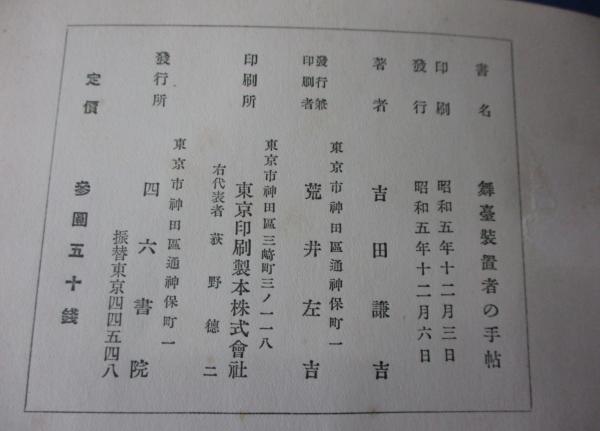 書名 舞臺裝置者の手帖
印刷 昭和五年十二月三日
發行 昭和五年十二月六日
著者 吉田謙吉
東京市神田區通神保町一
發行兼印刷者 荒井左吉
東京市神田區三崎町三ノ一一八
印刷所 東京印刷製本株式會社
右代表者 荻野德二
東京市神田區通神保町一
發行所 四六書院
振替東京四四五四八
定價 參圓五十錢